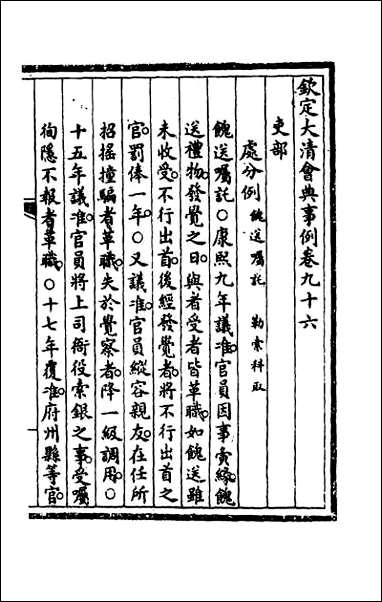 欽定大清會典事例卷九十六
吏部
處分例 餽送囑託 勒索科斂
餽送囑託○康熙九年議准官員因事夤緣餽
送禮物發覺之日與者受者皆革職如餽送雖
未收受不行出首後經發覺者將不行出首之
官罰俸一年○又議准官員縱容親友在任所
招搖撞騙者革職失於覺察者降一級調用○
十五年議准官員將上司衙役索銀之事受囑
徇隱不報者革職○十七年覆准府州縣等官